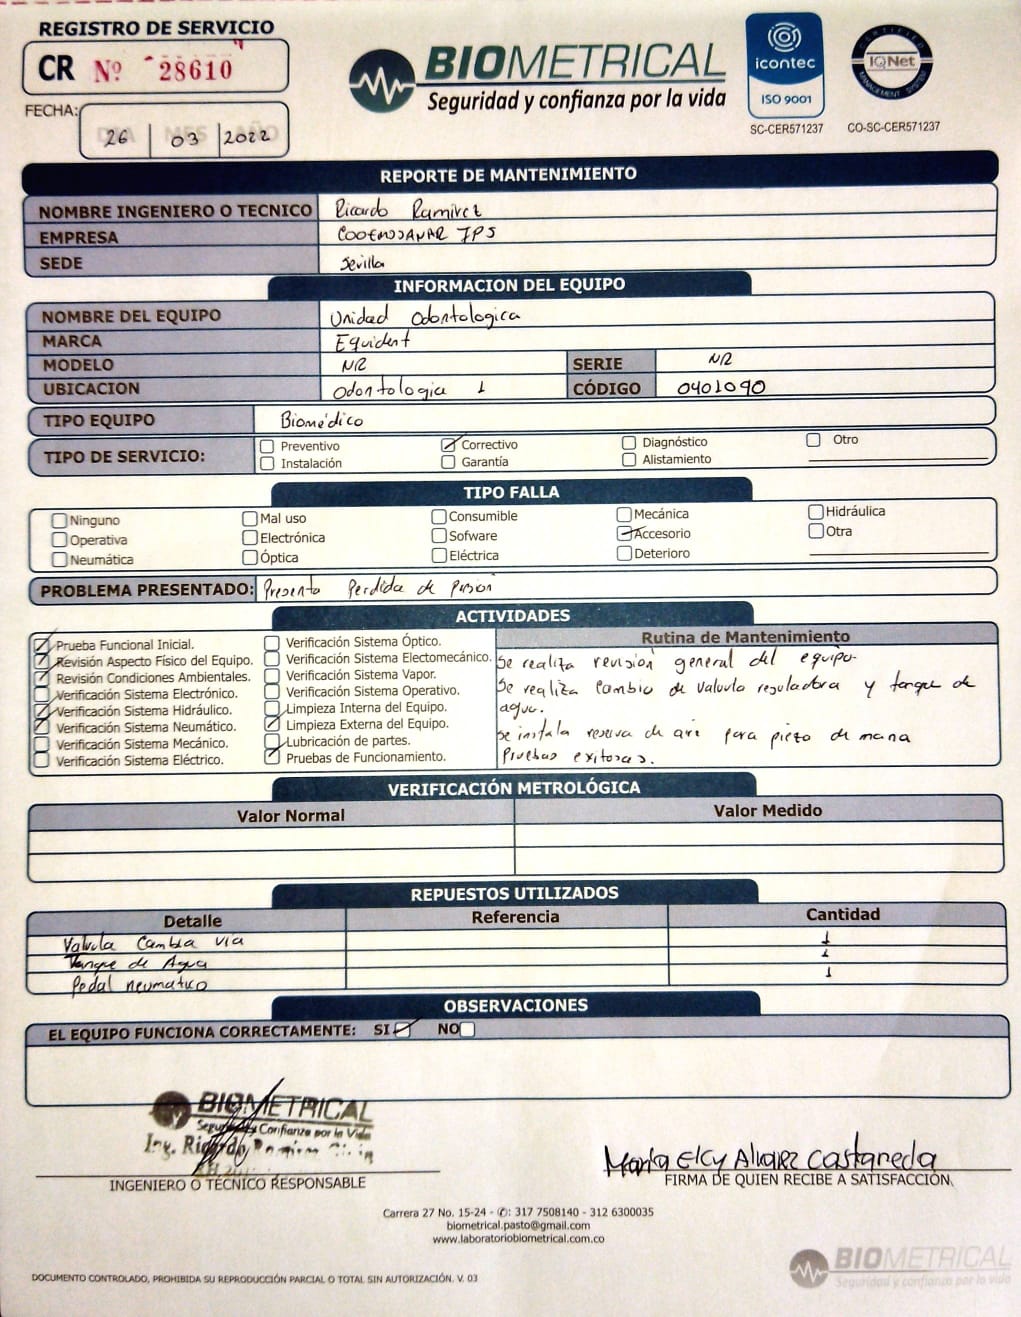 REGISTRO DE SERVICIO
CR Nº 28610
BIOMETRICAL
Seguridad y confianza por la vida
icontec
ISO 9001
SC-CER571237
CERTIFIED
IQNet
MANAGEMENT SYSTEM
CO-SC-CER571237
FECHA:
DIA MES AÑO
26 03 2022
REPORTE DE MANTENIMIENTO
NOMBRE INGENIERO O TECNICO Ricardo Ramirez
EMPRESA COOEMSSANAR IPS
SEDE Sevilla
INFORMACION DEL EQUIPO
NOMBRE DEL EQUIPO Unidad Odontologica
MARCA Equident
MODELO NR SERIE NR
UBICACION Odontologica 1 CÓDIGO 0401090
TIPO EQUIPO Biomédico
TIPO DE SERVICIO:
Preventivo Correctivo Diagnóstico Otro
Instalación Garantía Alistamiento
TIPO FALLA
Ninguno Mal uso Consumible Mecánica Hidráulica
Operativa Electrónica Sofware Accesorio Otra
Neumática Óptica Eléctrica Deterioro
PROBLEMA PRESENTADO: Presenta Perdida de presion
ACTIVIDADES
Prueba Funcional Inicial.
Revisión Aspecto Físico del Equipo.
Revisión Condiciones Ambientales.
Verificación Sistema Electrónico.
Verificación Sistema Hidráulico.
Verificación Sistema Neumático.
Verificación Sistema Mecánico.
Verificación Sistema Eléctrico.
Verificación Sistema Óptico.
Verificación Sistema Electomecánico.
Verificación Sistema Vapor.
Verificación Sistema Operativo.
Limpieza Interna del Equipo.
Limpieza Externa del Equipo.
Lubricación de partes.
Pruebas de Funcionamiento.
Rutina de Mantenimiento
Se realiza revisión general del equipo.
Se realiza Cambio de Valvula reguladora y tanque de
agua.
Se instala reserva de aire para pieza de mano
Pruebas exitosas.
VERIFICACIÓN METROLÓGICA
Valor Normal Valor Medido
REPUESTOS UTILIZADOS
Detalle Referencia Cantidad
Valvula Cambia via 1
Tanque de Agua 1
Pedal neumatico 1
OBSERVACIONES
EL EQUIPO FUNCIONA CORRECTAMENTE: SI NO
BIOMETRICAL
Seguridad y Confianza por la Vida
Ing. Ricardo Ramirez
INGENIERO O TÉCNICO RESPONSABLE
Maria Elcy Alvarez Castañeda
FIRMA DE QUIEN RECIBE A SATISFACCIÓN
Carrera 27 No. 15-24 - ✆: 317 7508140 - 312 6300035
biometrical.pasto@gmail.com
www.laboratoriobiometrical.com.co
DOCUMENTO CONTROLADO, PROHIBIDA SU REPRODUCCIÓN PARCIAL O TOTAL SIN AUTORIZACIÓN. V. 03
BIOMETRICAL
Seguridad y confianza por la vida